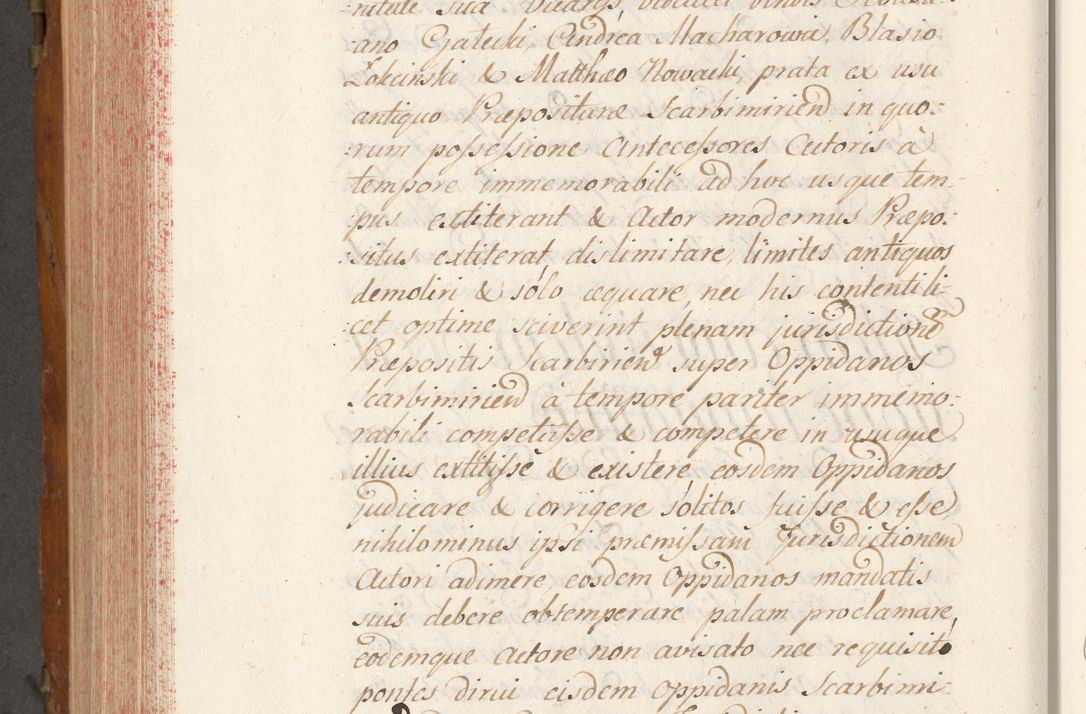 -nitate sua Vicarys
:ano Gjałecki, Andrea Macharowa, Blasio
Łokcinski & Matthæo Nowacki, prata ex usu
antiquo Præpositure Scarbimirien in quo:
:rum possessione Antecessores Actoris à
tempore immemorabili ad hoc usque tem-
:pus extiterant & Actor modernus Præpo:
:situs extiterat, dislimitare, limites antiquos
demoliri & sólo æquare, nec his contenti li-
:cet optime sciverint plenam jurisdictione
Præpositis Scarbirien super Oppidanos
Scarbimirien à tempore pariter immemo:
rabili competiisse & competere in usuque
illius extitisse & existere, eosdem Oppidanos
judicare & corrigere sólitos fuisse & esse,
nihilominus ipsi præmissam Jurisdictionem
Actori adimere eosdem Oppidanos mandatis
suis debere obtemperare palam proclamare,
eodemque Actore non avisato nec requisito
pontes dirui eisdem Oppidanis Scarbimi-